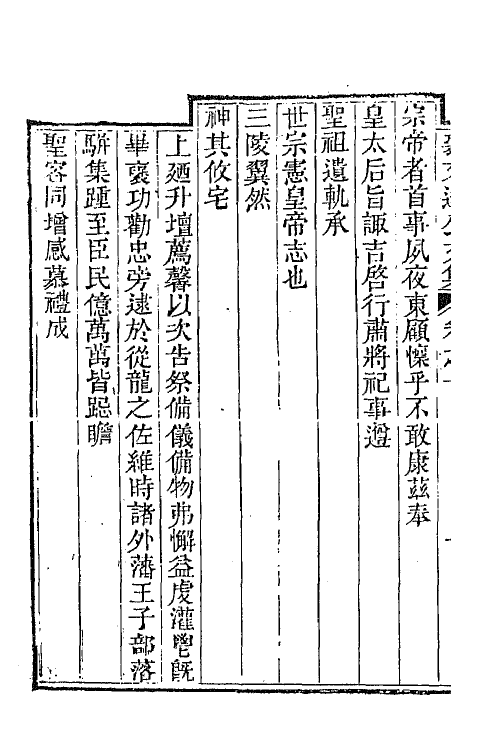 宗帝者首事夙夜東顧懍乎不敢康茲奉
皇太后旨諏吉啓行肅將祀事遵
聖祖遺軌承
世宗憲皇帝志也
三陵翼然
神其攸宅
上廼升壇薦馨以次告祭備儀備物弗懈益虔灌鬯既
畢褒功勸忠旁逮於從龍之佐維時諸外藩王子部落
駢集踵至臣民億萬萬皆跽瞻
聖容同增感慕禮成